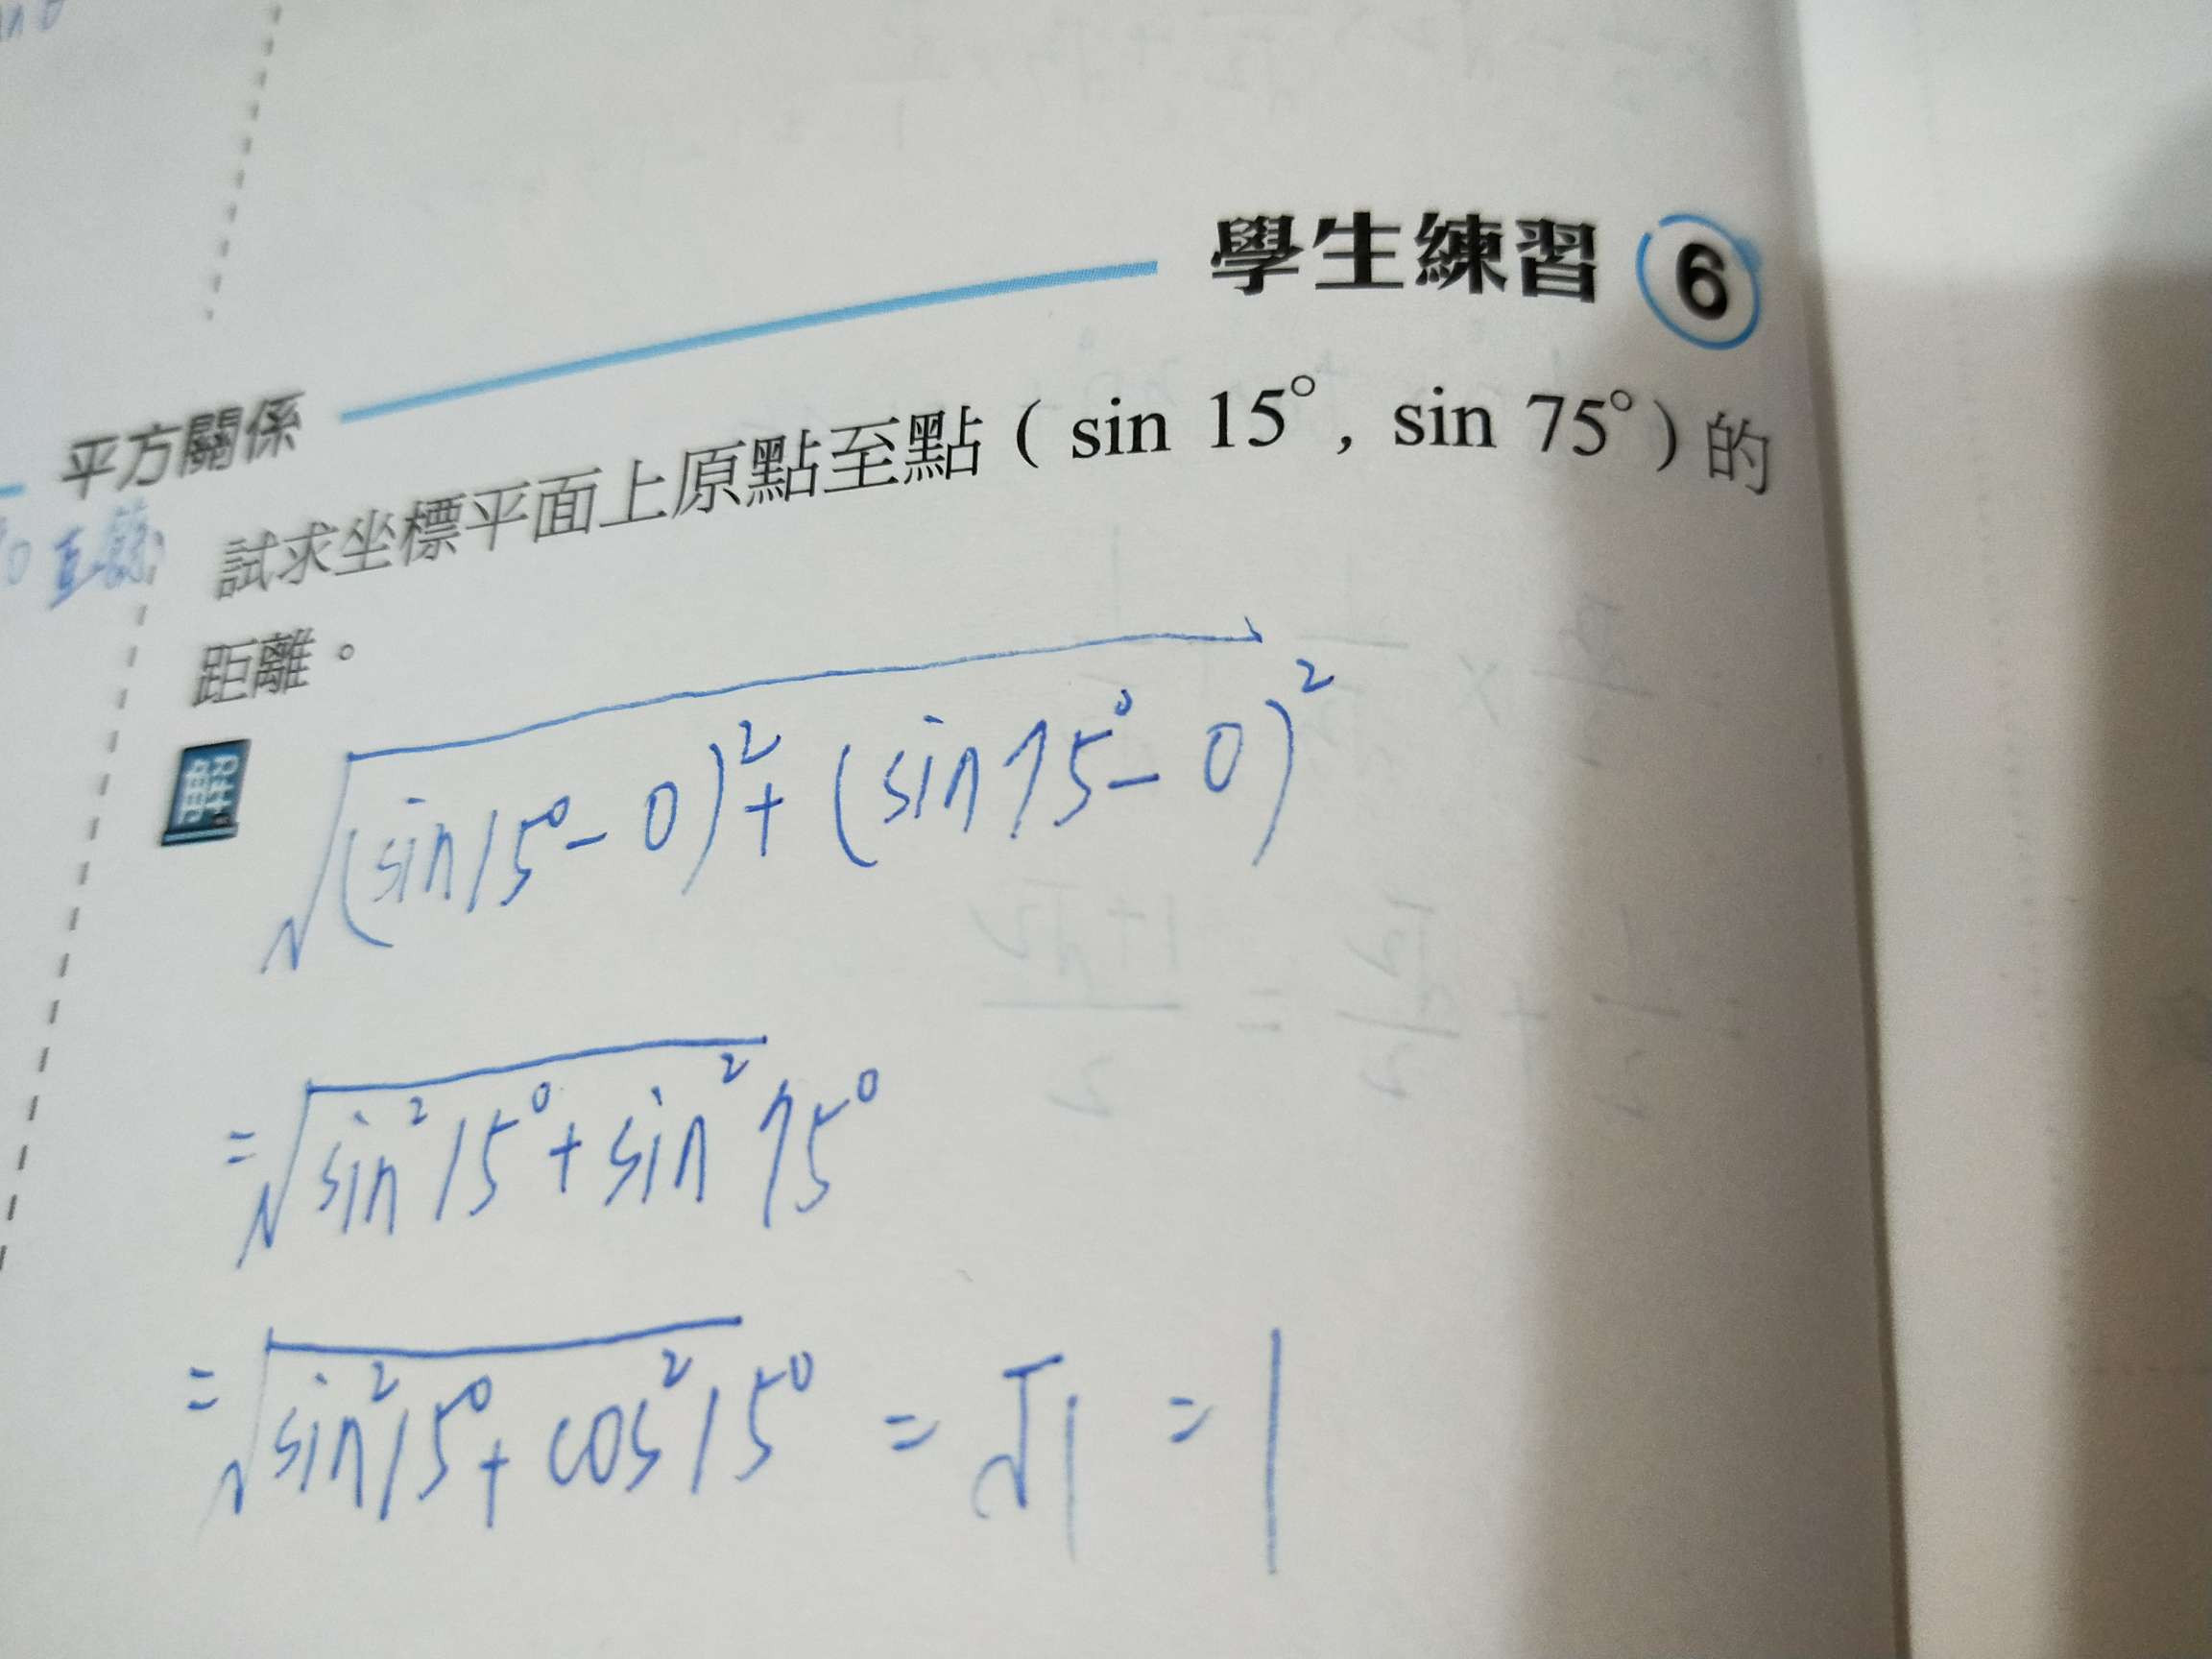 學生練習 6
平方關係
試求坐標平面上原點至點 ( sin 15°, sin 75° ) 的
距離。
解
√(sin15°-0)²+(sin75°-0)²
=√sin²15°+sin²75°
=√sin²15°+cos²15° = √1 = 1